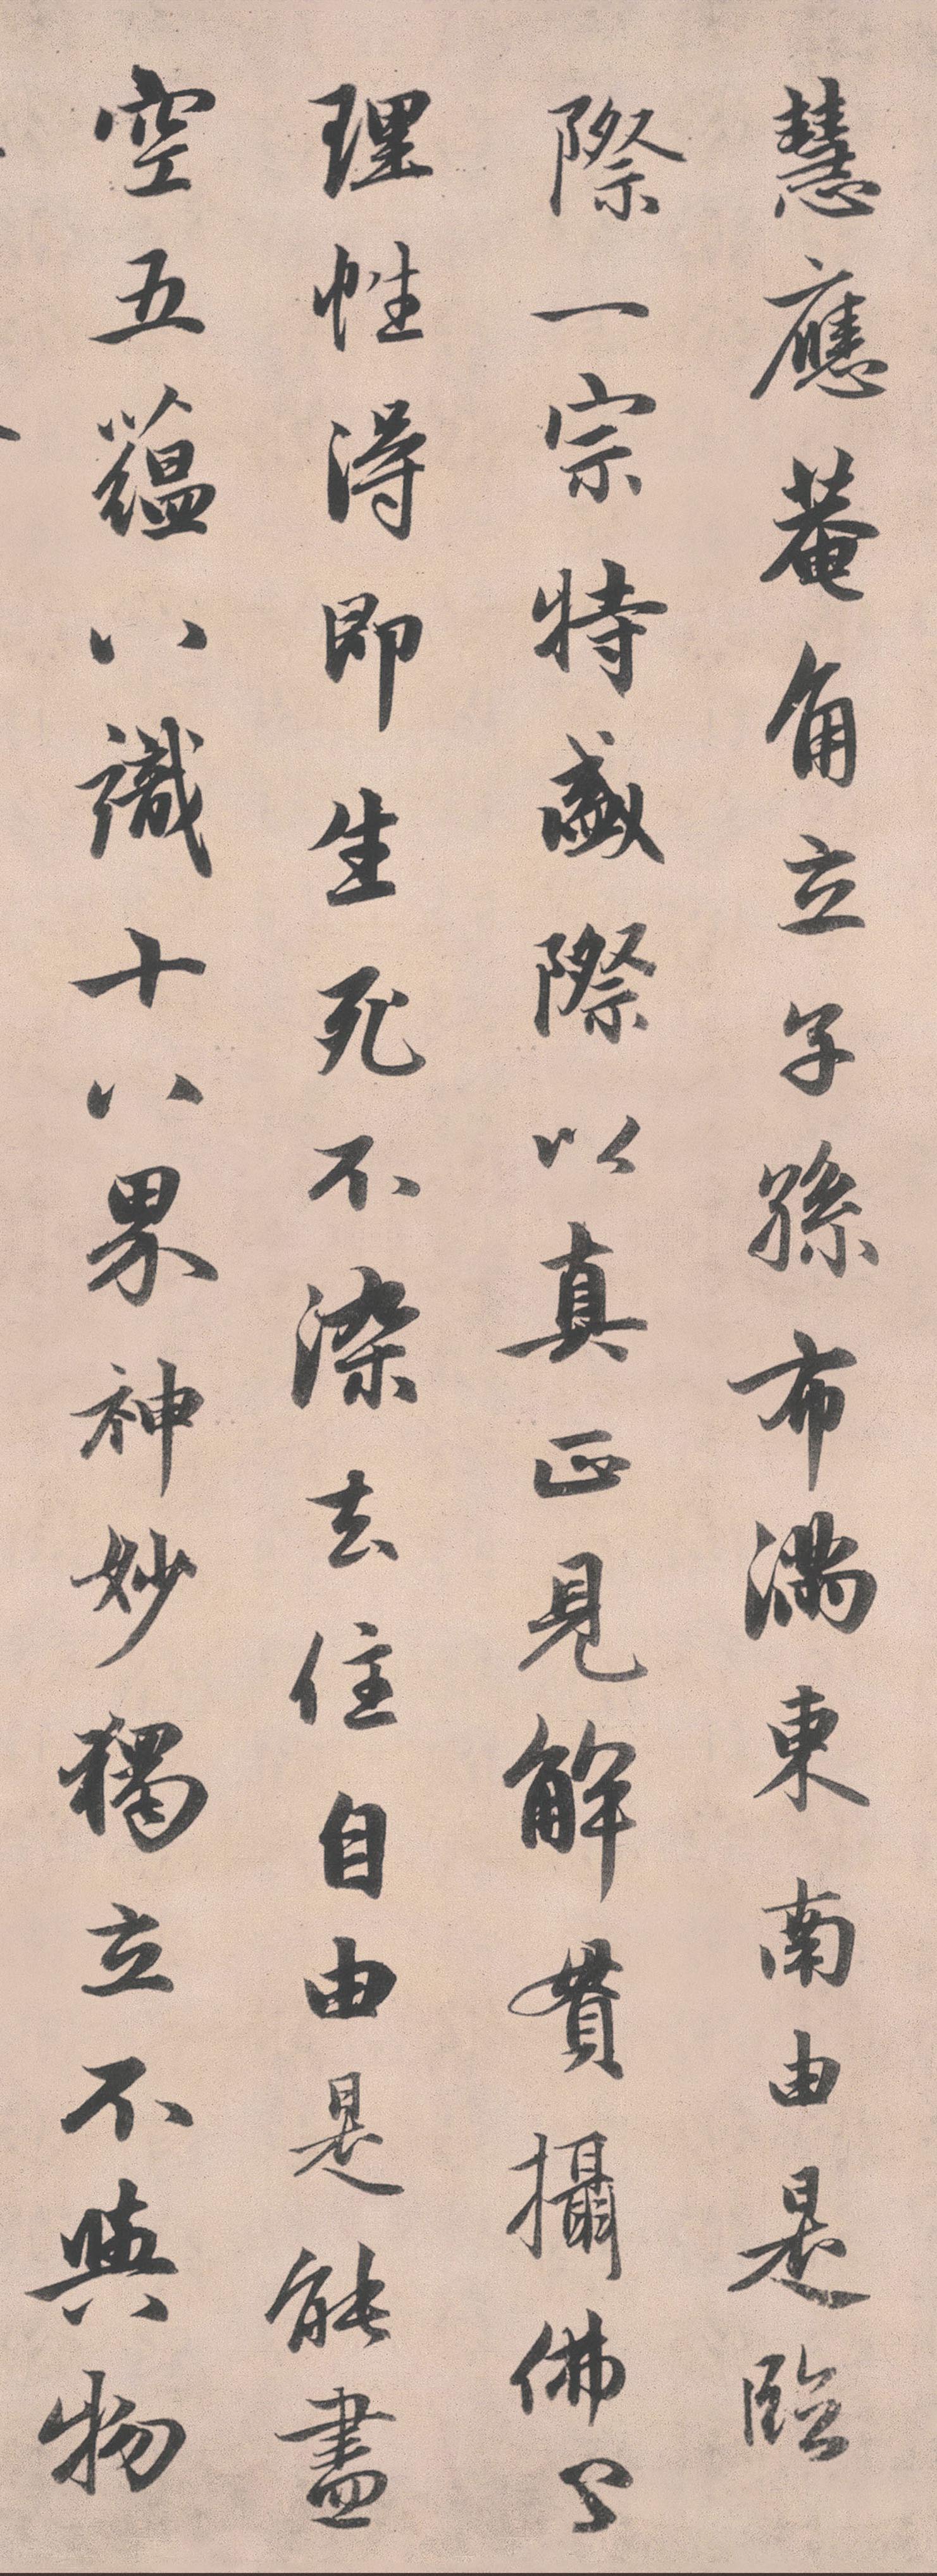 慧應菴角立子孫布滿東南由是臨
際一宗特盛際以真正見解貫攝佛
理性得即生死不染去住自由是能盡
空五蘊八識十八界神妙獨立不與物